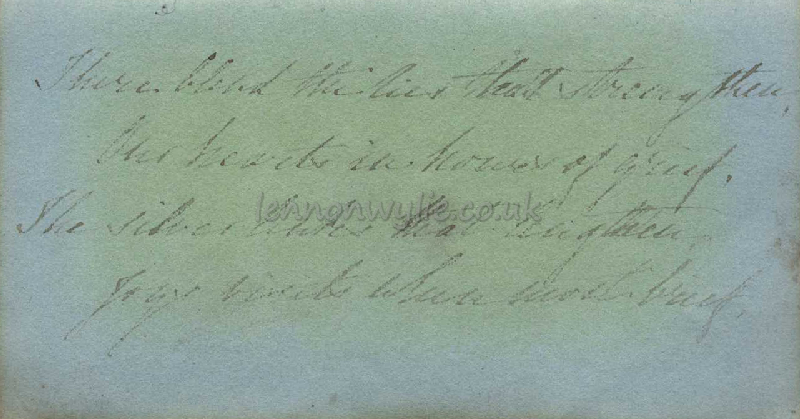 There blend the ties that strengthen,
Our hearts in hours of grief.
The silver links that lengthen
Joys visits when most brief.
lennonwylie.co.uk